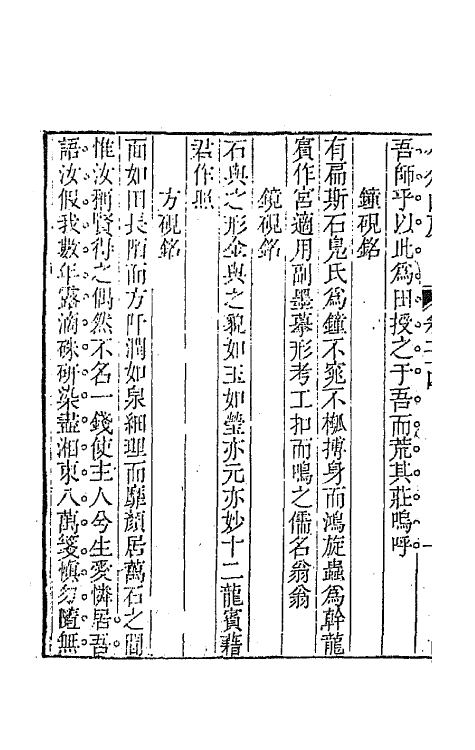 吾師乎以此爲田授之于吾而荒其莊嗚呼
鐘硯銘
有扁斯石鳬氏爲鐘不窕不槬搏身而鴻旋蟲爲幹龍
賓作宮適用副墨摹形考工扣而鳴之儒名翁翁
鏡硯銘
石與之形金與之貌如玉如瑩亦元亦妙十二龍賓藉
君作照
方硯銘
面如田長陌而方阡潤如泉細理而靡顔居萬石之間
惟汝稱賢得之偶然不名一錢使主人兮生愛憐居吾
語汝假我數年露滴硃研染盡湘東八萬箋愼勿隨無